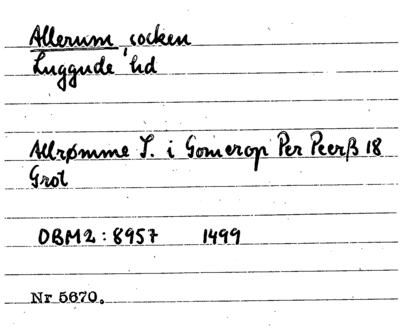 Allerum socken
Luggude hd
Allrømme S. i Gomerop Per Peerß 18
Grot
DBM2:8957 1499
Nr 5670.